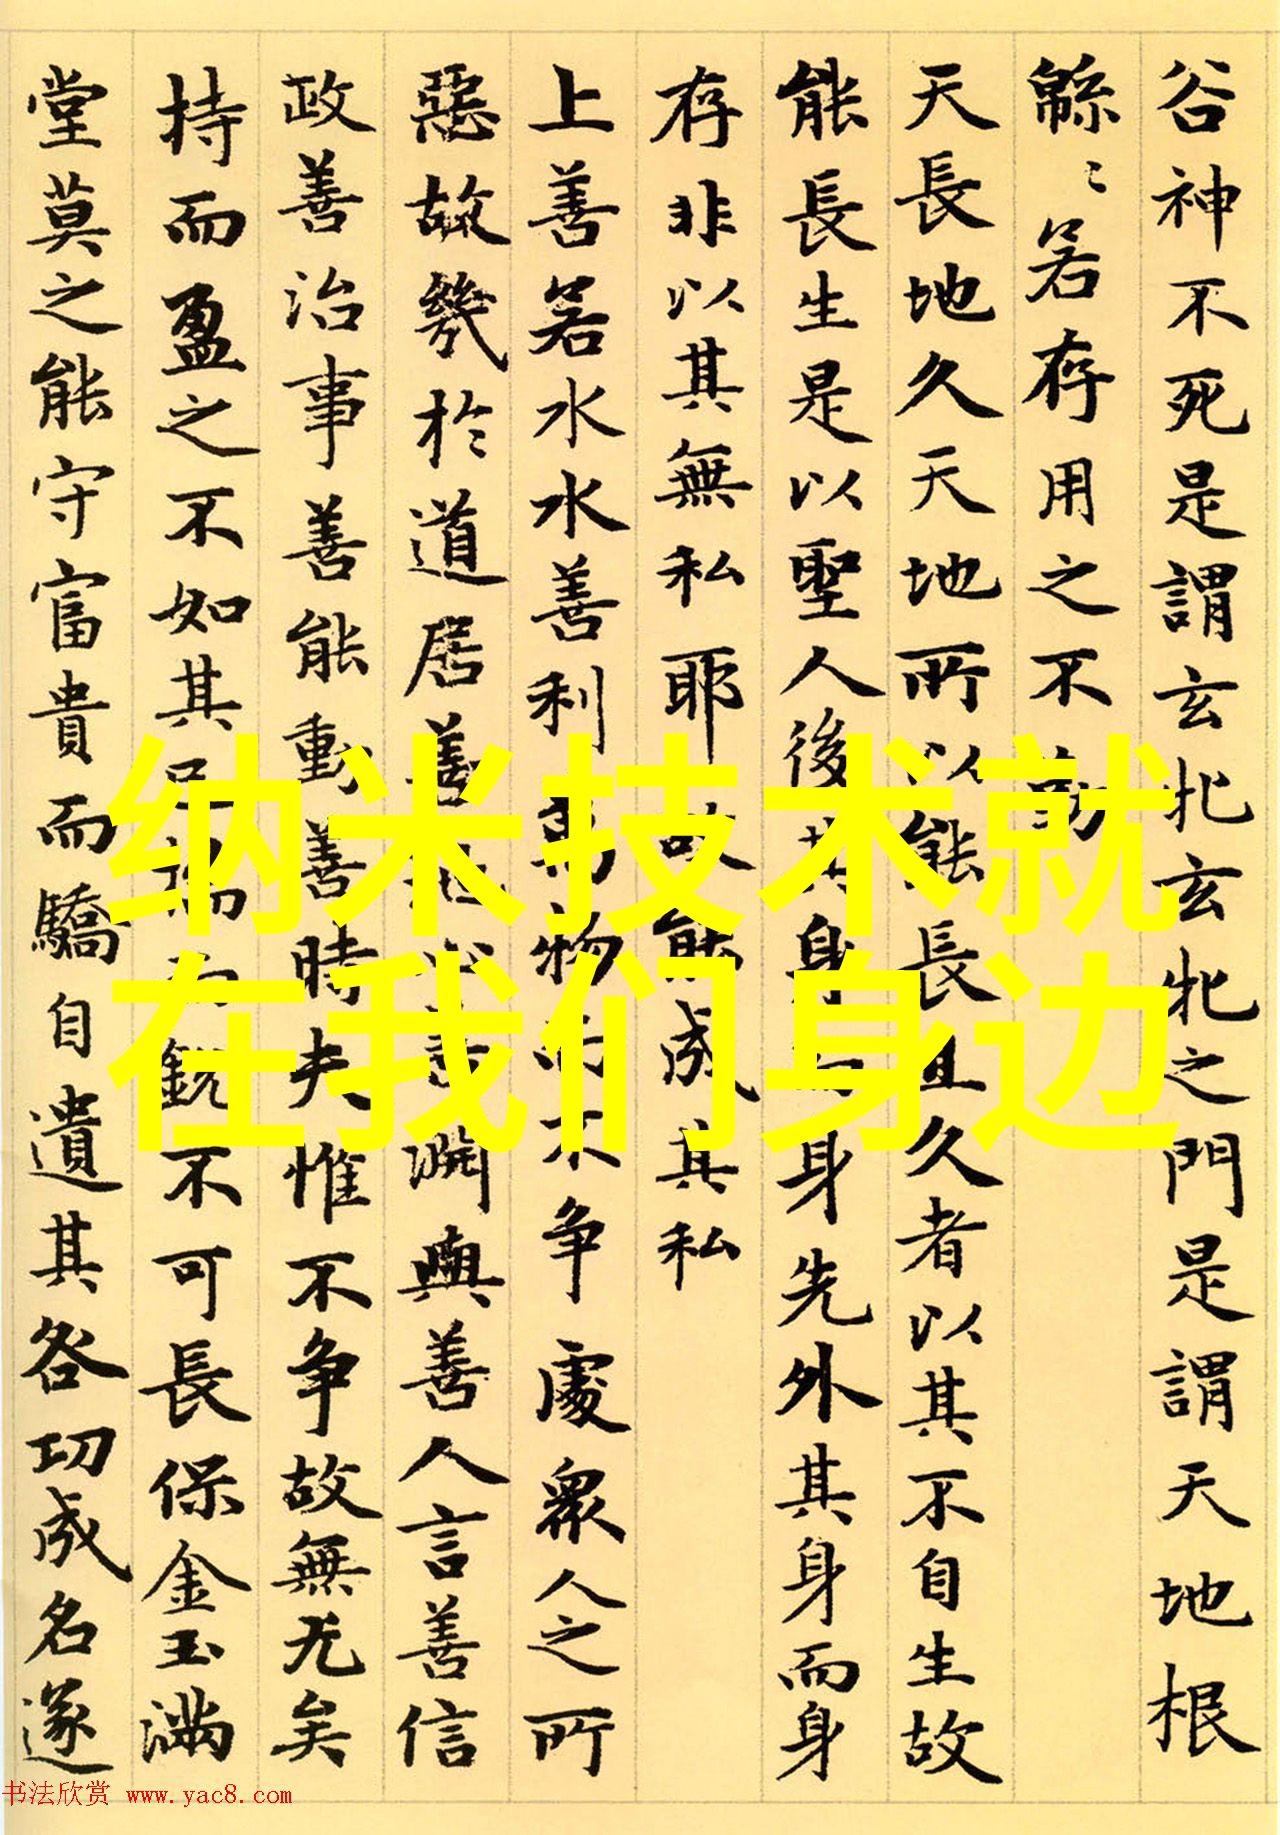 谷神不死是謂玄牝玄牝之門是謂天地根
緜〻若存用之不勤
天長地久天地所以能長且久者以其不自生故
能長生是以聖人後其身而身先外其身而身
存非以其無私耶故能成其私
上善若水水善利萬物而不争處衆人之所
惡故幾於道居善地心善淵與善人言善信
政善治事善能動善時夫惟不争故無尤矣
持而盈之不如其已揣而銳不可長保金玉滿
堂莫之能守富貴而驕自遺其咎功成名遂
纳米技术就
在我们身边
书法欣赏 www.yac8.com